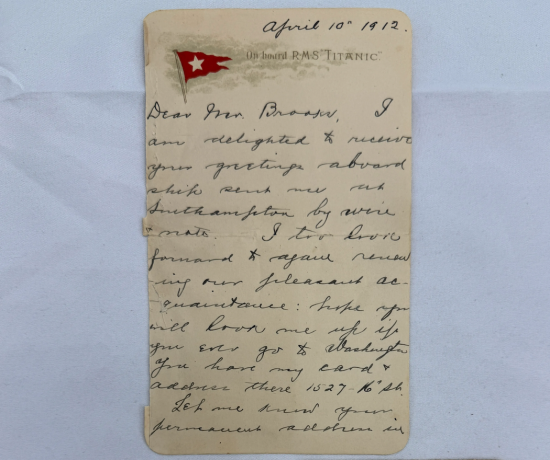 April 10th 1912.
On board R.M.S. "TITANIC."
Dear Mr. Brooks, I
am delighted to receive
your greetings aboard
ship sent me at
Southampton by wire
& note. I too look
forward to again renew
-ing our pleasant ac-
quaintance: hope you
will look me up if
you ever go to Washington
You have my card &
address there 1527-16" St.
Let me know your
permanent address in